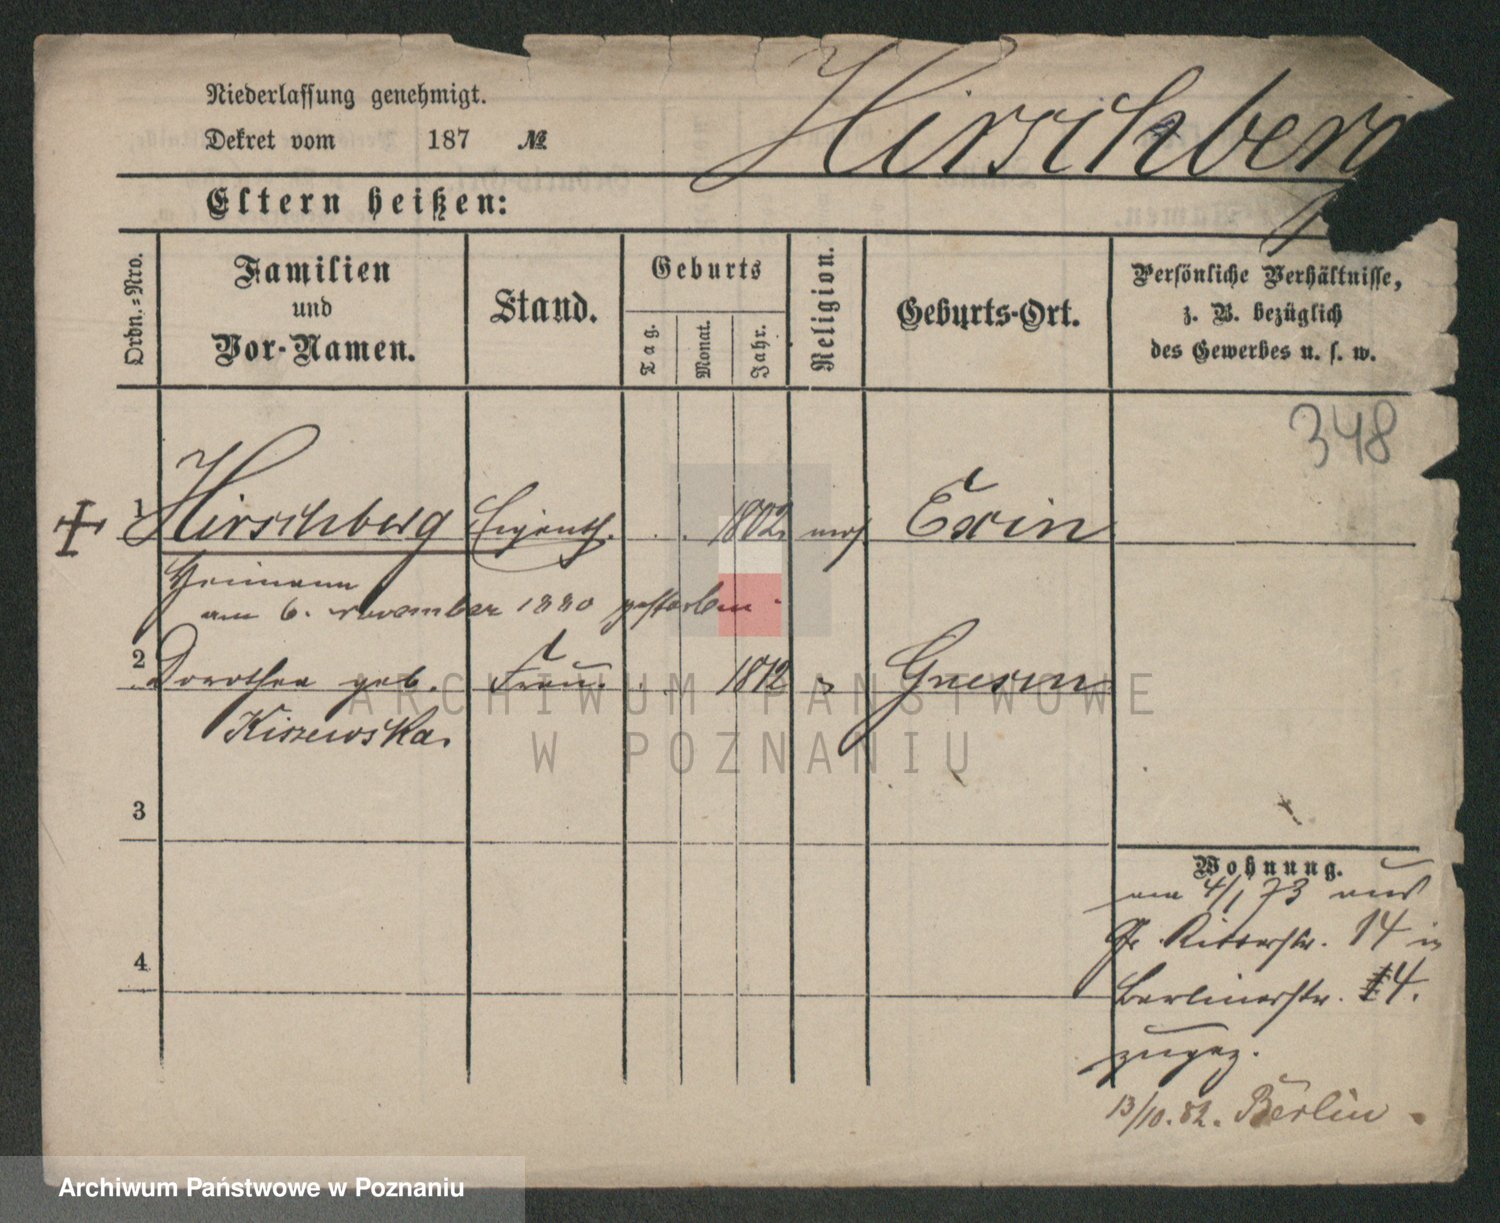 Niederlassung genehmigt.
Dekret vom 187 №
Hirschberg
Eltern heißen:
Ordn.=Nro.
Familien
und
Vor-Namen.
Stand.
Geburts
Tag.
Monat.
Jahr.
Religion.
Geburts-Ort.
Persönliche Verhältnisse,
z. B. bezüglich
des Gewerbes u. s. w.
348
1 Hirschberg Eigenth. 1802. mos. Exin
Heimann
am 6. November 1880 gestorben.
2 Dorothea geb. Frau. 1812 " Gnesen
Kiszewska.
3
4
Wohnung.
am 4/1 73 aus
Gr. Ritterstr. 14 in
Berlinerstr. 14.
zugez.
13/10.82. Berlin
ARCHIWUM PAŃSTWOWE
W POZNANIU
Archiwum Państwowe w Poznaniu